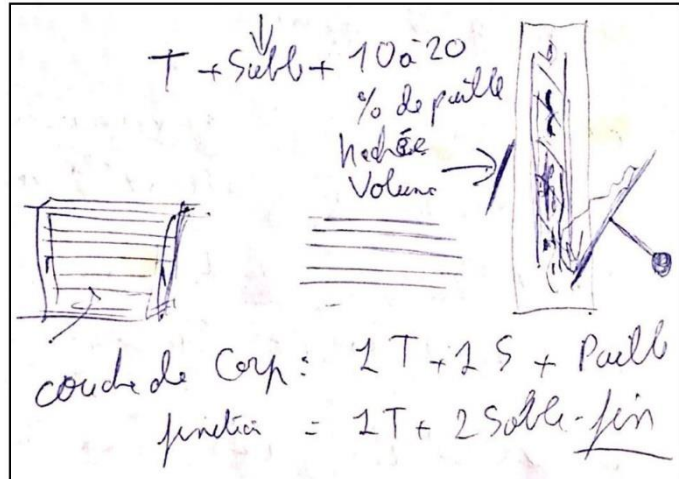 T + Sable + 10 à 20
% de paille
hachée
Volume
couche de Corp : 1 T + 1 S + Paille
finition = 1 T + 2 Sable-fin